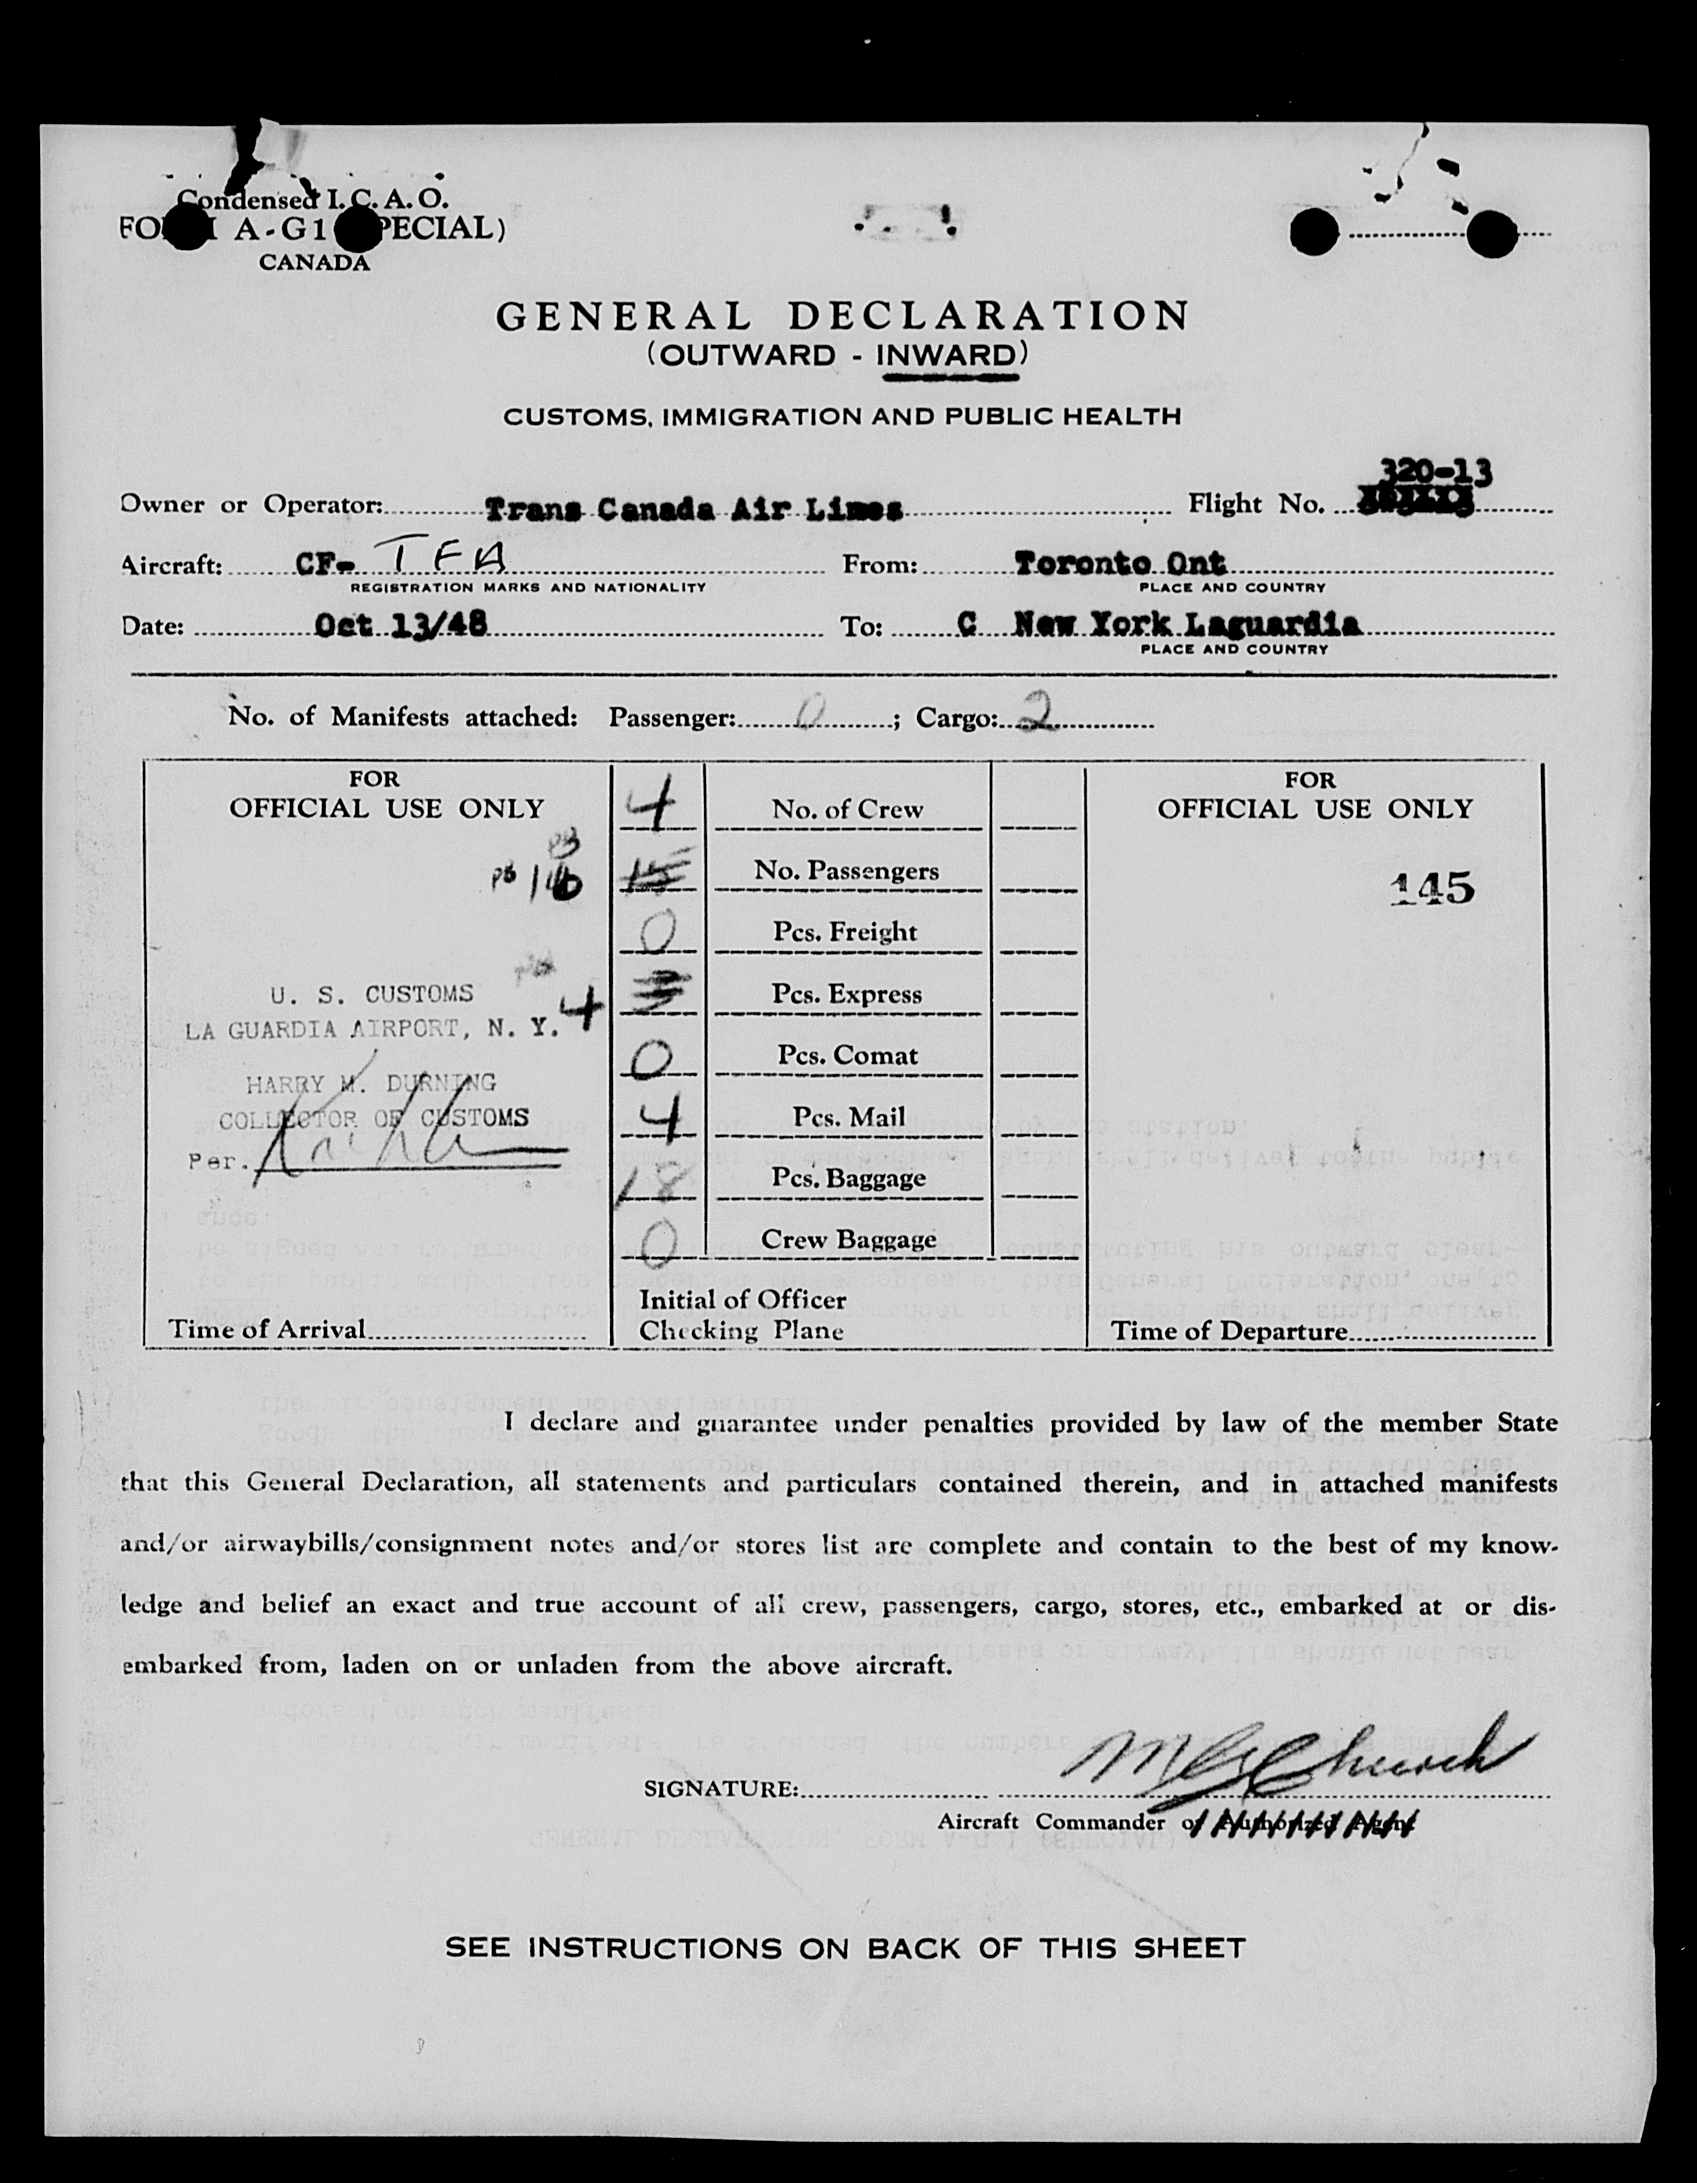 Condensed I. C. A. O.
FORM A-G1 (SPECIAL)
CANADA
GENERAL DECLARATION
(OUTWARD - INWARD)
CUSTOMS, IMMIGRATION AND PUBLIC HEALTH
320-13
Owner or Operator: Trans Canada Air Lines Flight No.
Aircraft: CF- TFA From: Toronto Ont
REGISTRATION MARKS AND NATIONALITY PLACE AND COUNTRY
Date: Oct 13/48 To: C New York Laguardia
PLACE AND COUNTRY
No. of Manifests attached: Passenger: 0 ; Cargo: 2
FOR
OFFICIAL USE ONLY
4 No. of Crew
FOR
OFFICIAL USE ONLY
16 15 No. Passengers
145
0 Pcs. Freight
U. S. CUSTOMS
4 3 Pcs. Express
LA GUARDIA AIRPORT, N. Y.
0 Pcs. Comat
HARRY M. DURNING
COLLECTOR OF CUSTOMS
4 Pcs. Mail
Per.
18 Pcs. Baggage
0 Crew Baggage
Initial of Officer
Time of Arrival Checking Plane Time of Departure
I declare and guarantee under penalties provided by law of the member State
that this General Declaration, all statements and particulars contained therein, and in attached manifests
and/or airwaybills/consignment notes and/or stores list are complete and contain to the best of my know-
ledge and belief an exact and true account of all crew, passengers, cargo, stores, etc., embarked at or dis-
embarked from, laden on or unladen from the above aircraft.
SIGNATURE: Church
Aircraft Commander or Authorized Agent
SEE INSTRUCTIONS ON BACK OF THIS SHEET